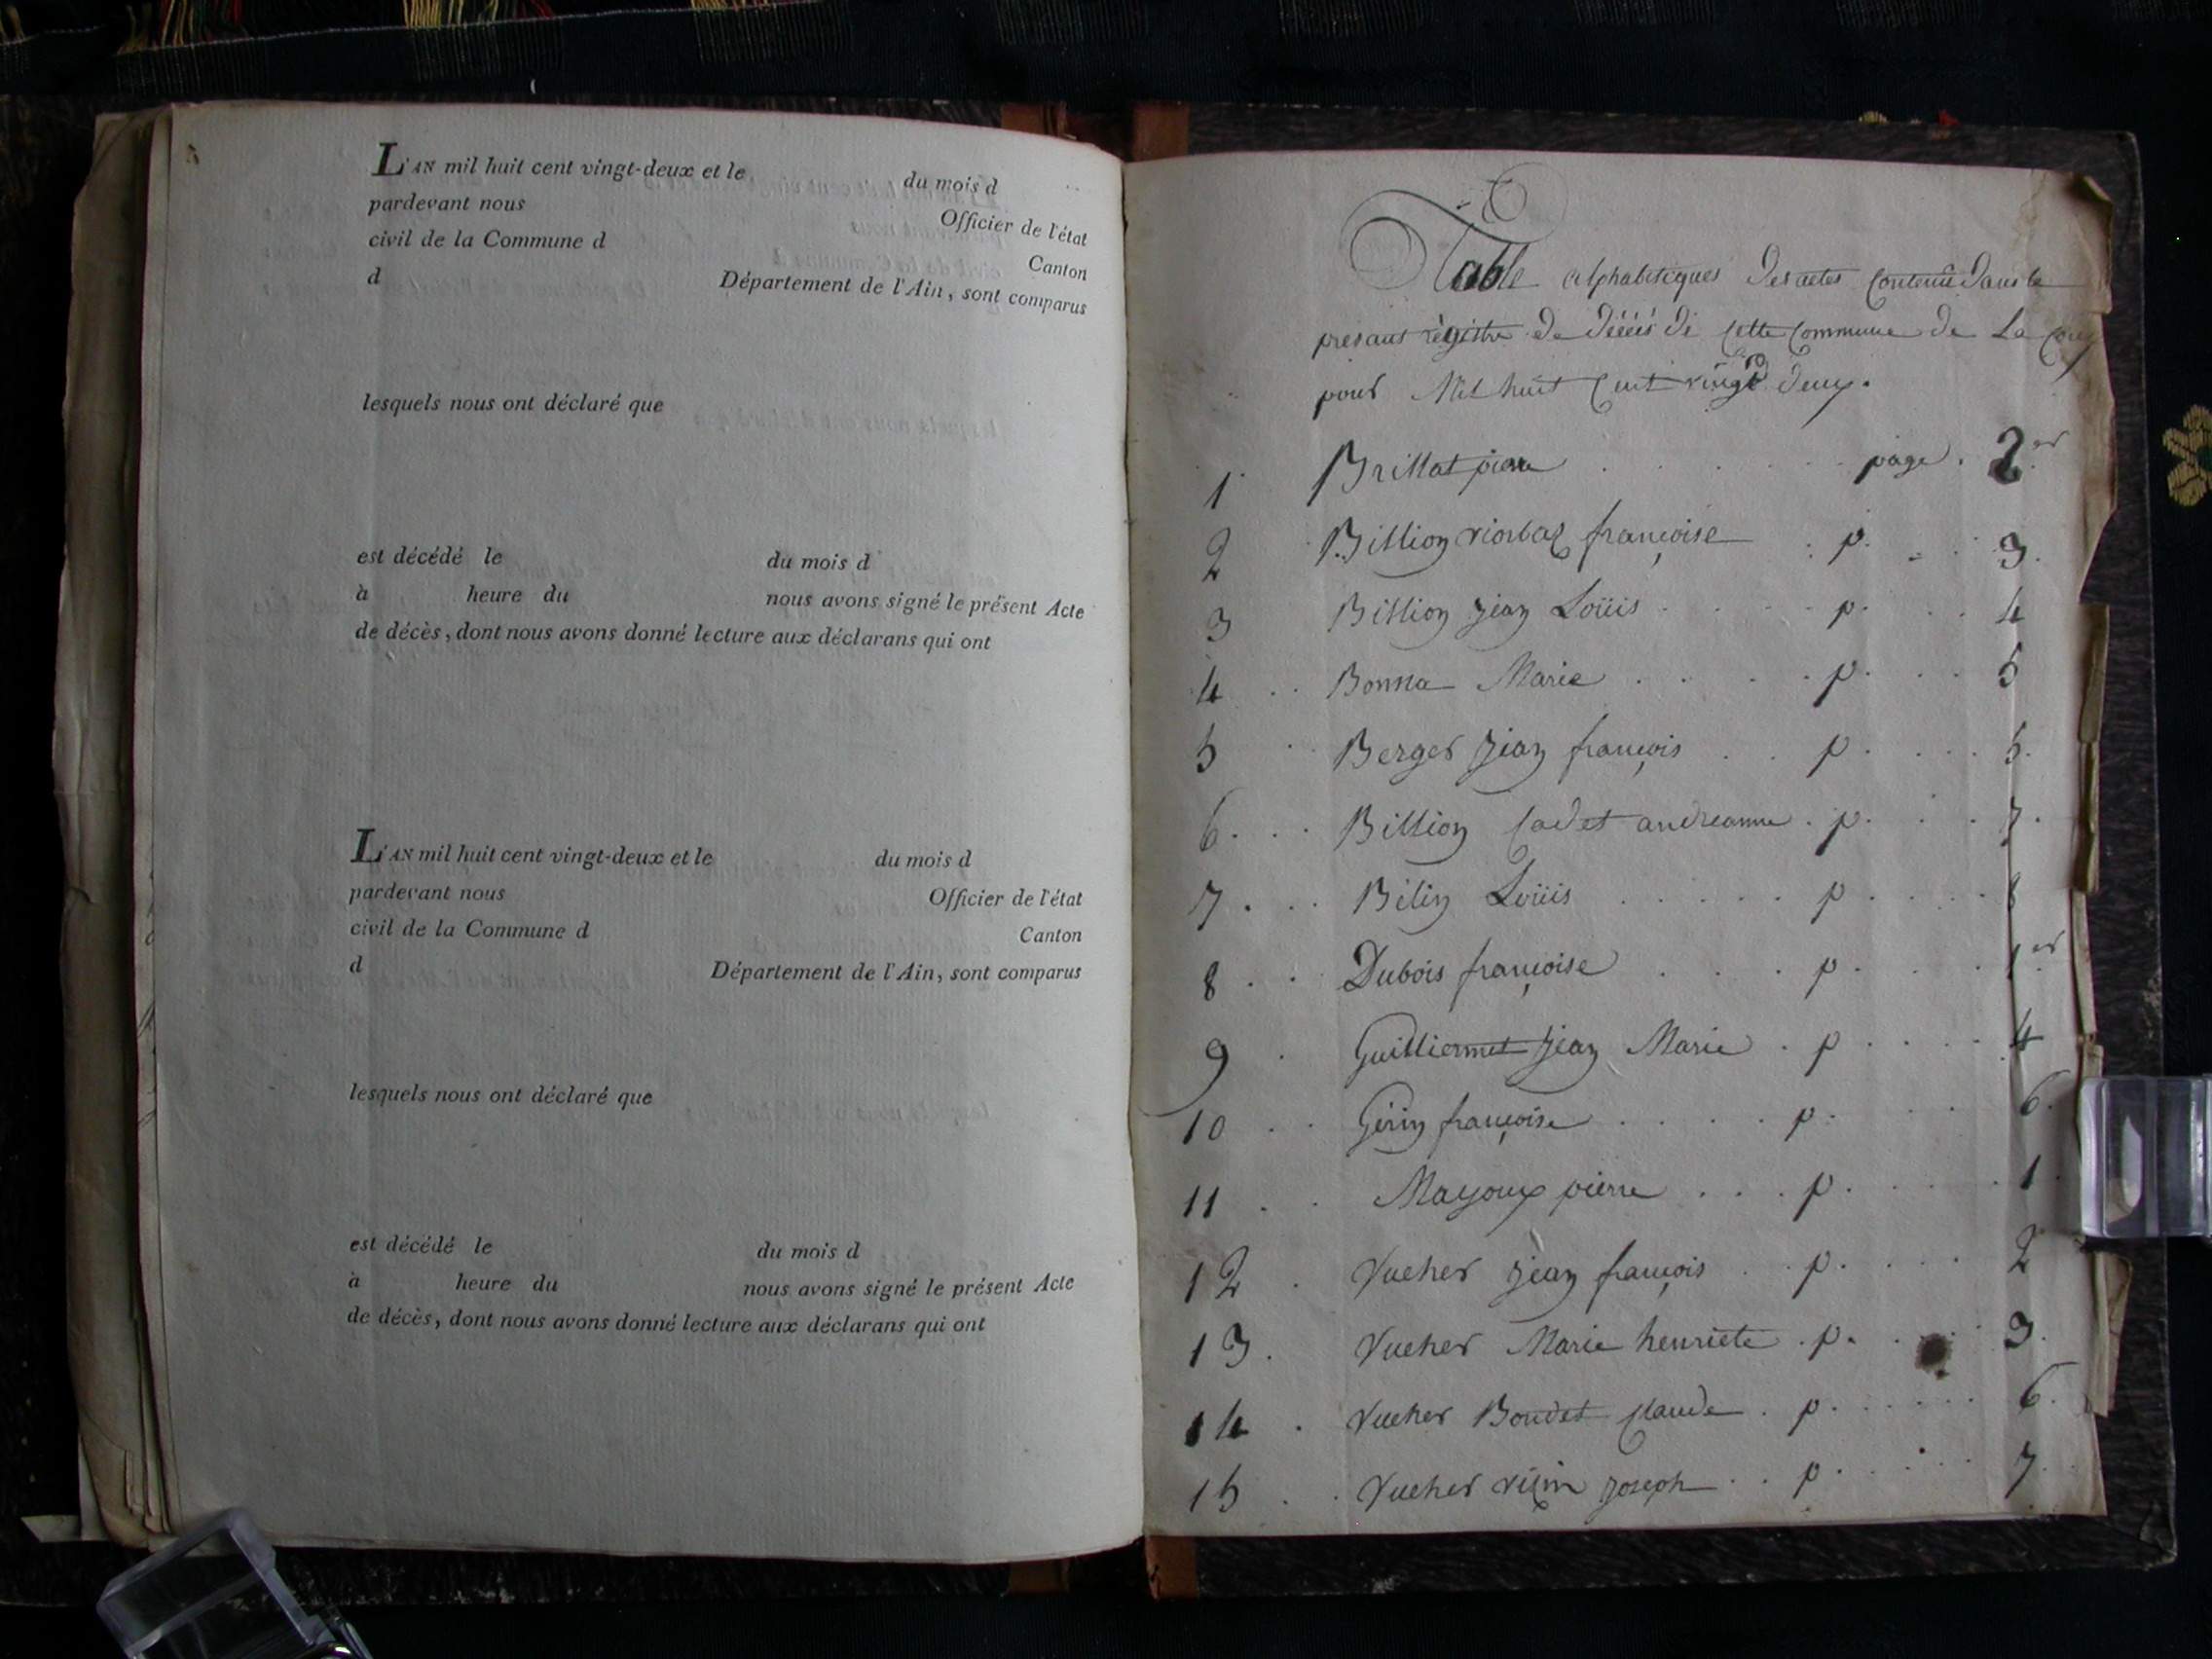 L'AN mil huit cent vingt-deux et le du mois d
pardevant nous Officier de l'état
civil de la Commune d Canton
d Département de l'Ain, sont comparus
lesquels nous ont déclaré que
est décédé le du mois d
à heure du nous avons signé le présent Acte
de décès, dont nous avons donné lecture aux déclarans qui ont
L'AN mil huit cent vingt-deux et le du mois d
pardevant nous Officier de l'état
civil de la Commune d Canton
d Département de l'Ain, sont comparus
lesquels nous ont déclaré que
est décédé le du mois d
à heure du nous avons signé le présent Acte
de décès, dont nous avons donné lecture aux déclarans qui ont
Table alphabetiques des actes contenu dans le
presant régistre de décés de cette commune de La
pour Mil huit Cent vingt deux.
1 Brillat piere page. 2er
2 Billion françoise p. 3.
3 Billion jean Loüis p. 4
4 Bonna Marie p. 5
5 Berger jean françois p. 5.
6. Billion Cadet andreanne. p. 7.
7. Bilin Loüis p. 8
8 Dubois françoise p. 1er
9 Guilliermet jean Marie p. 4
10 Gérin françoise p. 6.
11 Mayoux pierre p. 1.
12 Vucher jean françois p. 2
13. Vucher Marie henriete p. 3.
14 Vucher Boudet Claude p. 6.
15 Vucher joseph p. 7.